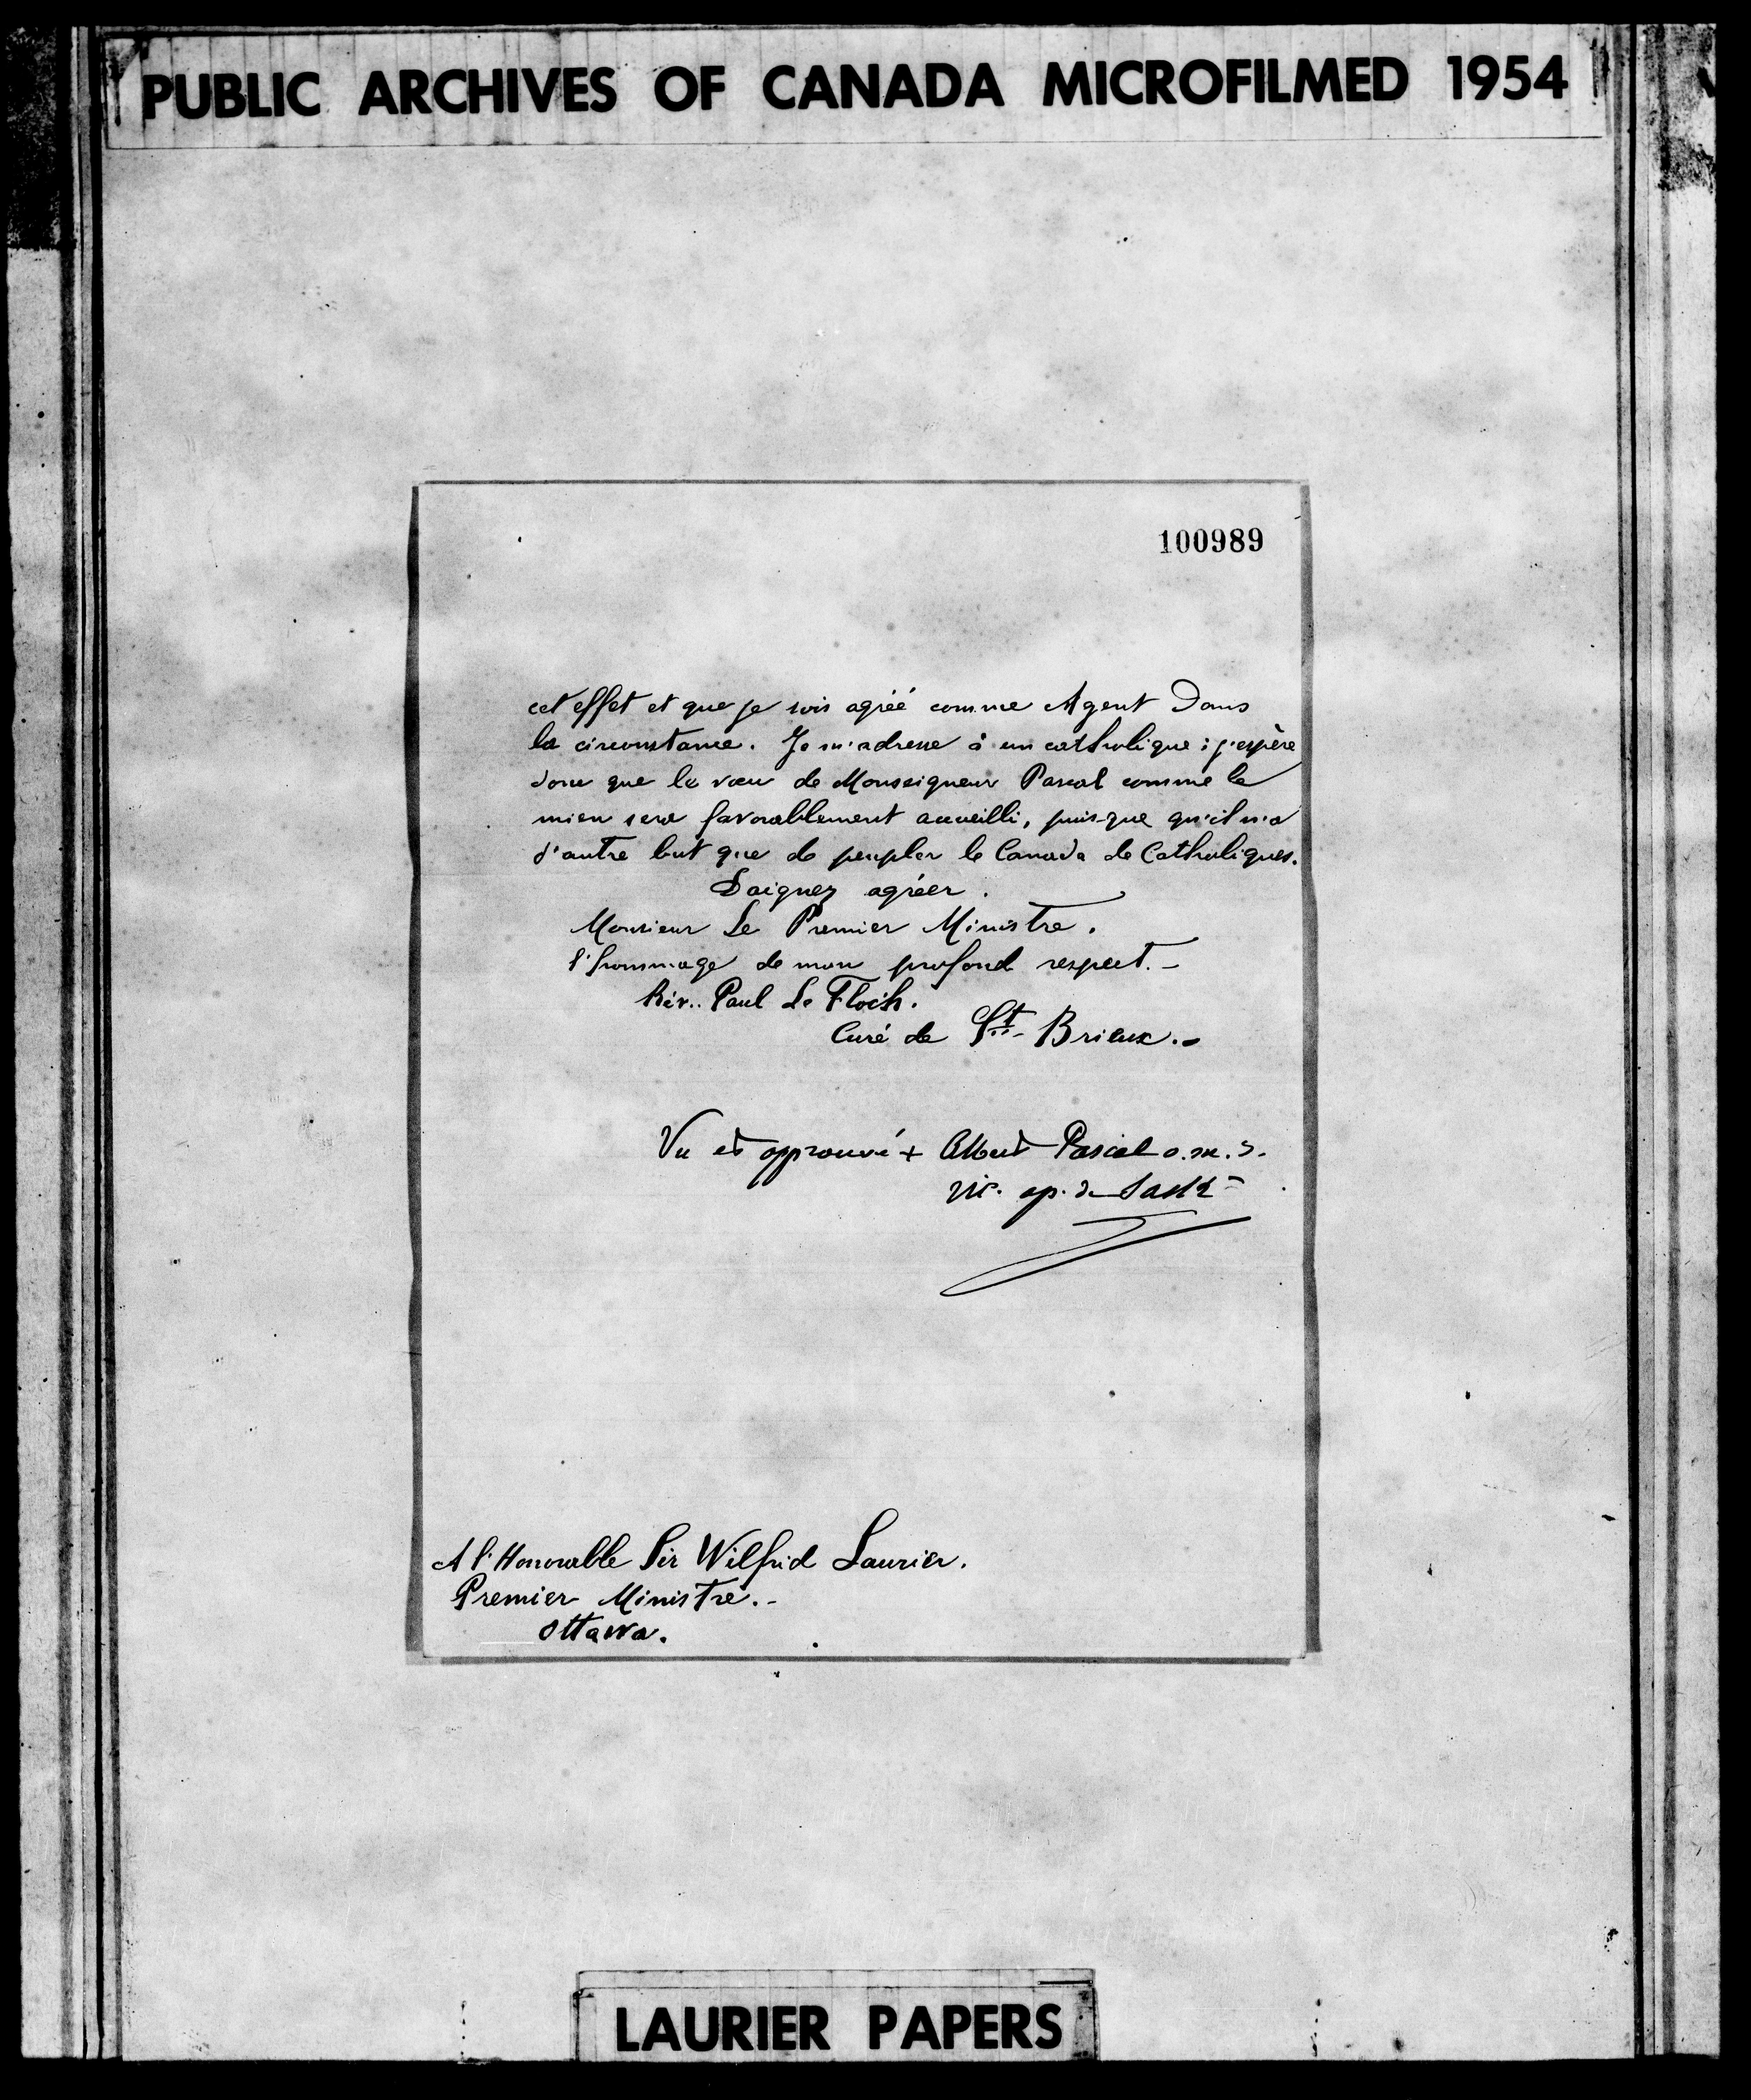 PUBLIC ARCHIVES OF CANADA MICROFILMED 1954
100989
cet effet et que je sois agréé comme Agent Dans
la circonstance. Je m'adresse à un catholique ; j'espère
donc que le vœu de Monseigneur Pascal comme le
mien sera favorablement accueilli, puis-que qu'il n'a
d'autre but que de peupler le Canada de Catholiques.
Daignez agréer.
Monsieur Le Premier Ministre.
l'hommage de mon profond respect.-
Rév.. Paul Le Floch.
Curé de St- Brieux.-
Vu et approuvé + Albert Pascal o.m.i.
Vic. ap. de Sask-
A l'Honorable Sir Wilfrid Laurier.
Premier Ministre.-
Ottawa.
LAURIER PAPERS